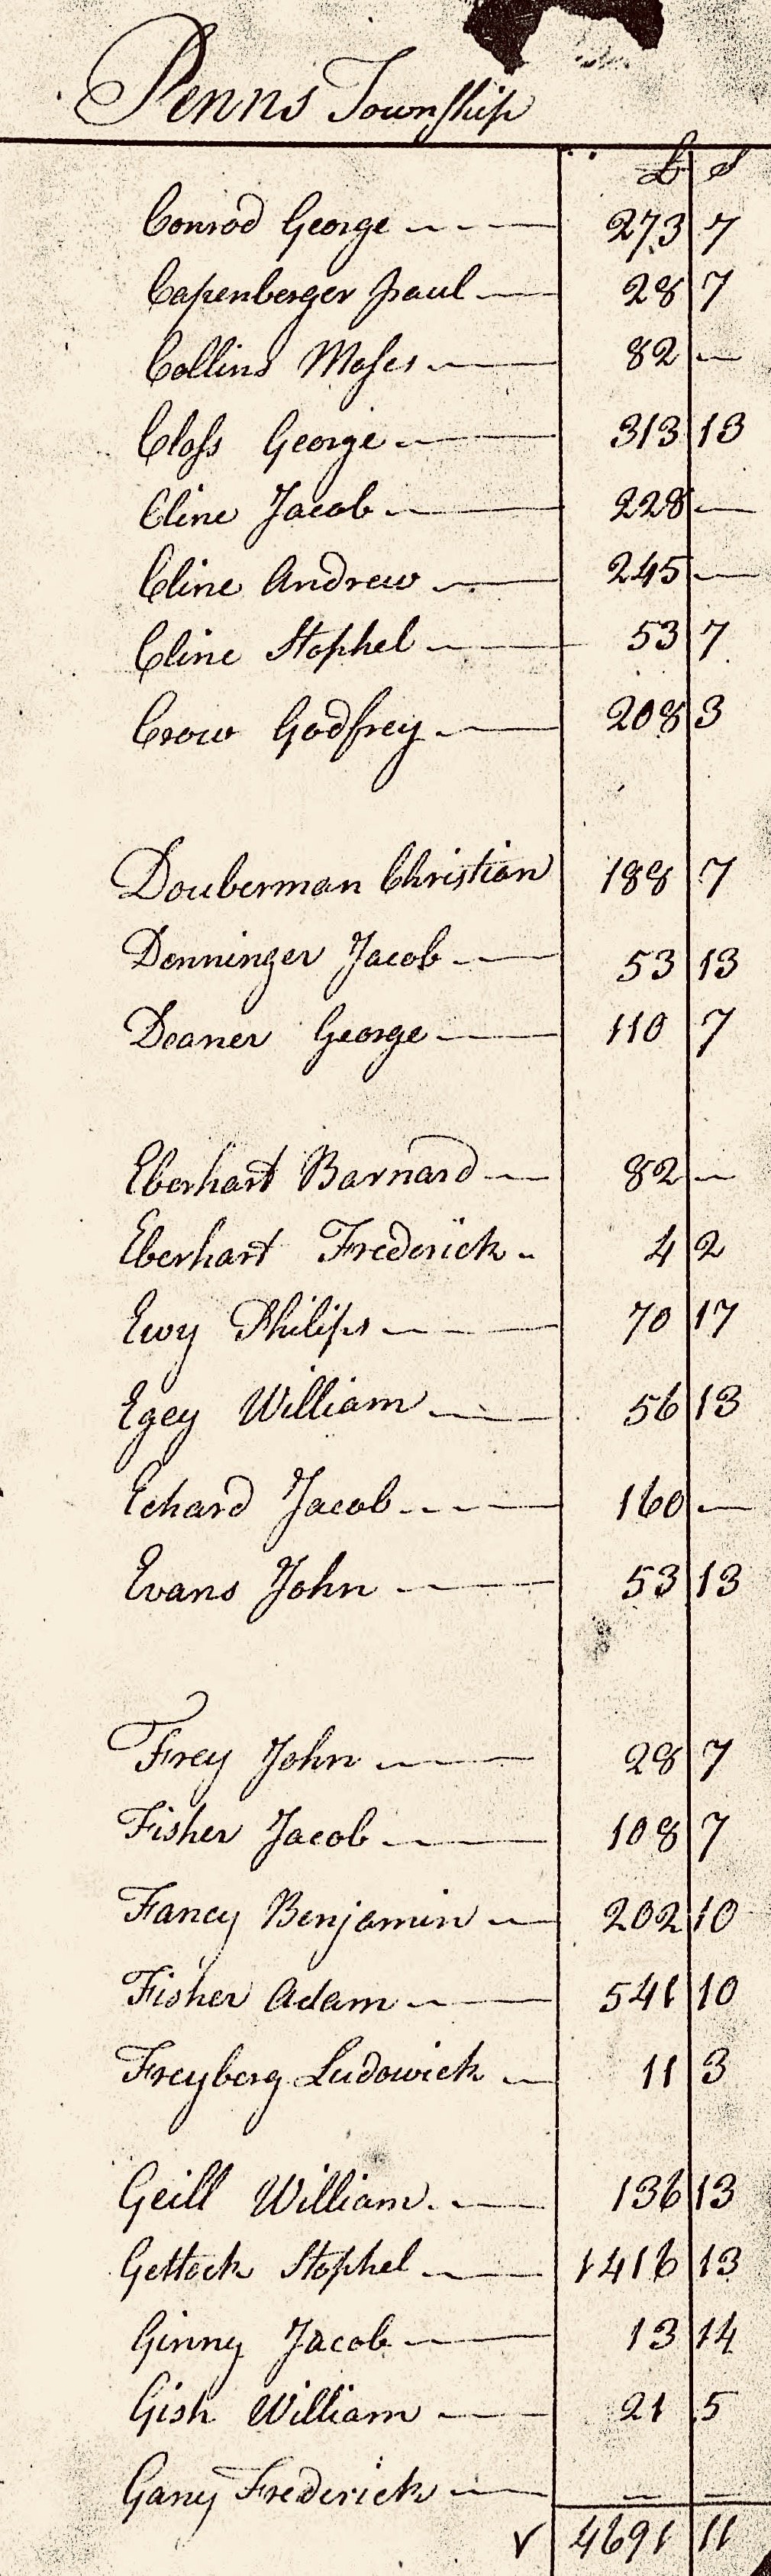 Penns Township
£ s
Conrod George 273 7
Capenberger Paul 28 7
Collins Moses 82 —
Closs George 313 13
Cline Jacob 228 —
Cline Andrew 245 —
Cline Stophel 53 7
Crow Godfrey 208 3
Douberman Christian 188 7
Denninger Jacob 53 13
Deaner George 110 7
Eberhart Barnard 82 —
Eberhart Frederick 4 2
Ewy Philips 70 17
Egey William 56 13
Echard Jacob 160 —
Evans John 53 13
Frey John 28 7
Fisher Jacob 108 7
Fancy Benjamin 202 10
Fisher Adam 541 10
Freyberg Ludowick 11 3
Geill William 136 13
Gettock Stophel 1416 13
Ginny Jacob 13 14
Gish William 21 5
Gany Frederick — —
√ 4691 11